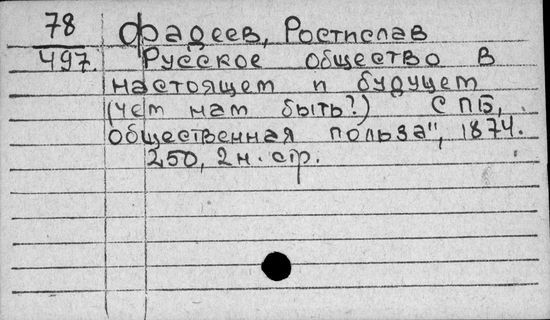 78
497.
Фадеев, Ростислав
Русское общество в
настоящем и будущем
(чем нам быть?) СПБ,
общественная польза", 1874.
250, 2 н. стр.